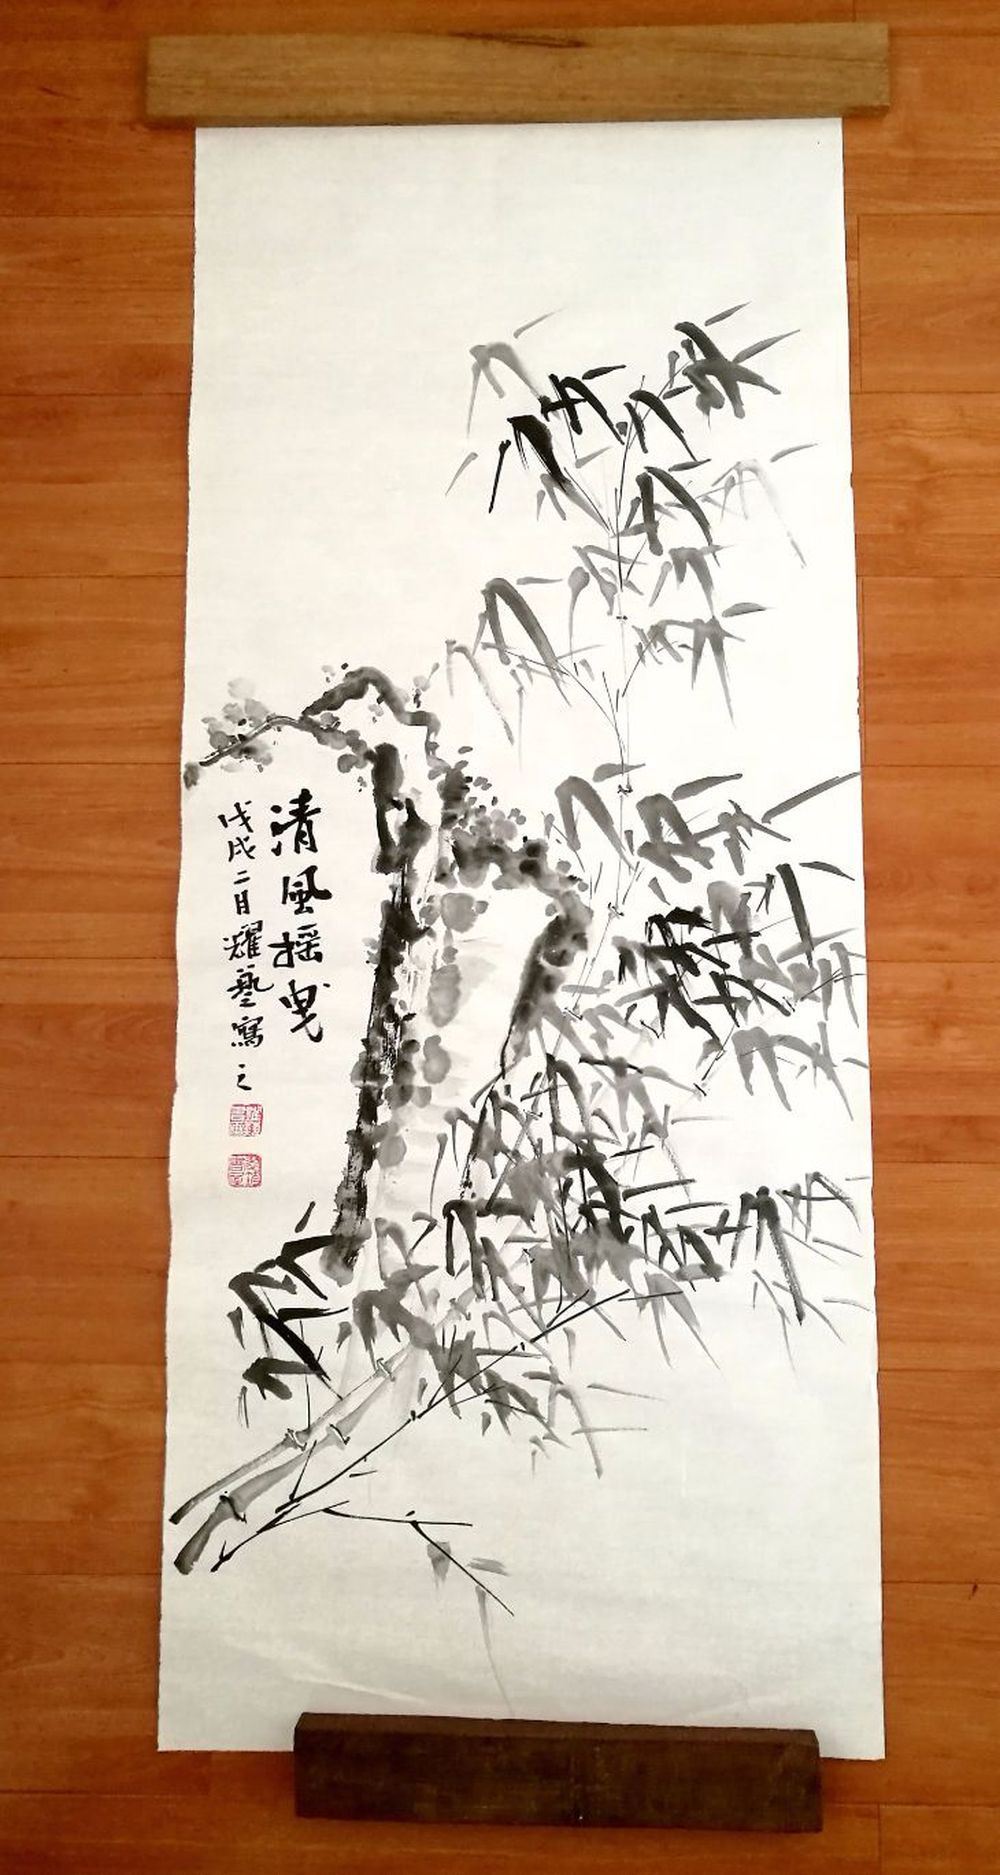 清風摇曳
戊戌二月耀藝寫之